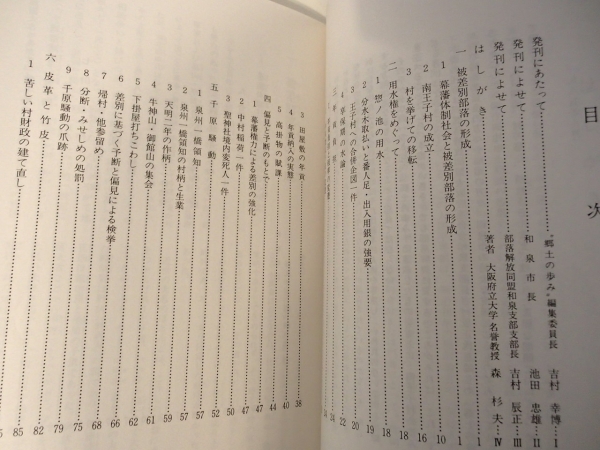 目次
発刊にあたって……“郷土の歩み”編集委員長 吉村 幸博…I
発刊によせて……和泉市長 池田 忠雄…II
発刊によせて……部落解放同盟和泉支部支部長 吉村 辰正…III
はしがき……著者 大阪府立大学名誉教授 森 杉夫…IV
一 被差別部落の形成……1
1 幕藩体制社会と被差別部落の形成……1
2 南王子村の成立……10
3 村を挙げての移転……16
二 用水権をめぐって……18
1 惣ノ池の用水……18
2 分水木取払いと番人足・出入用銀の強要……19
3 王子村への合併企図一件……20
4 享保期の水論……22
3 田屋敷の年貢……38
4 年貢納入の実態……40
5 高掛物の賦課……44
四 偏見と予断のもとで……47
1 幕藩権力による差別の強化……47
2 中村稲荷一件……47
3 聖神社境内変死人一件……50
五 千原騒動……52
1 泉州一橋領知……57
2 泉州一橋領知の村柄と生業……57
3 天明二年の作柄……59
4 牛神山・御館山の集会……61
5 下掛屋打ちこわし……62
6 差別に基づく予断と偏見による検挙……66
7 帰村・他参留め……68
8 分断・みせしめの処罰……75
9 千原騒動の爪跡……79
六 皮革と竹皮……82
1 苦しい村財政の建て直し……85